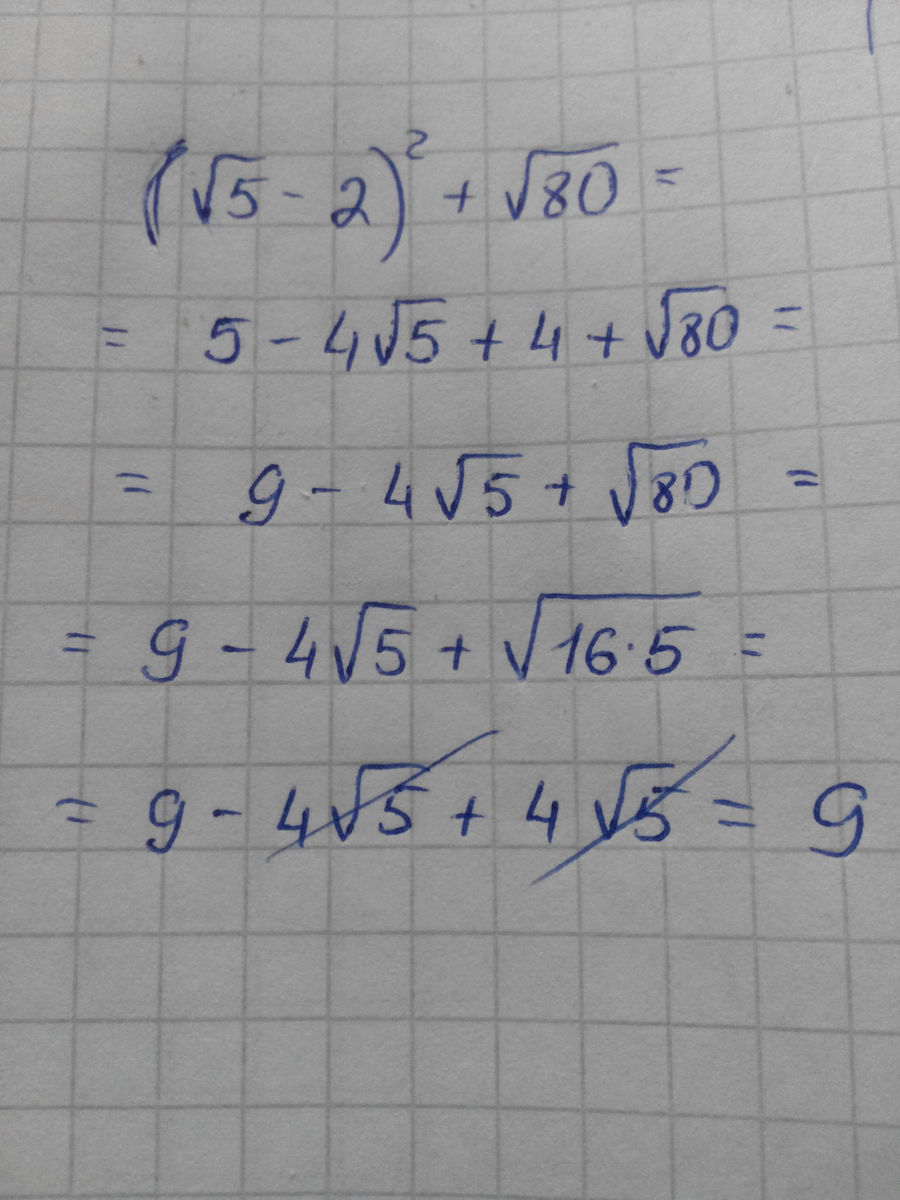 (√5 - 2)² + √80 =
= 5 - 4√5 + 4 + √80 =
= 9 - 4√5 + √80 =
= 9 - 4√5 + √16·5 =
= 9 - 4√5 + 4√5 = 9